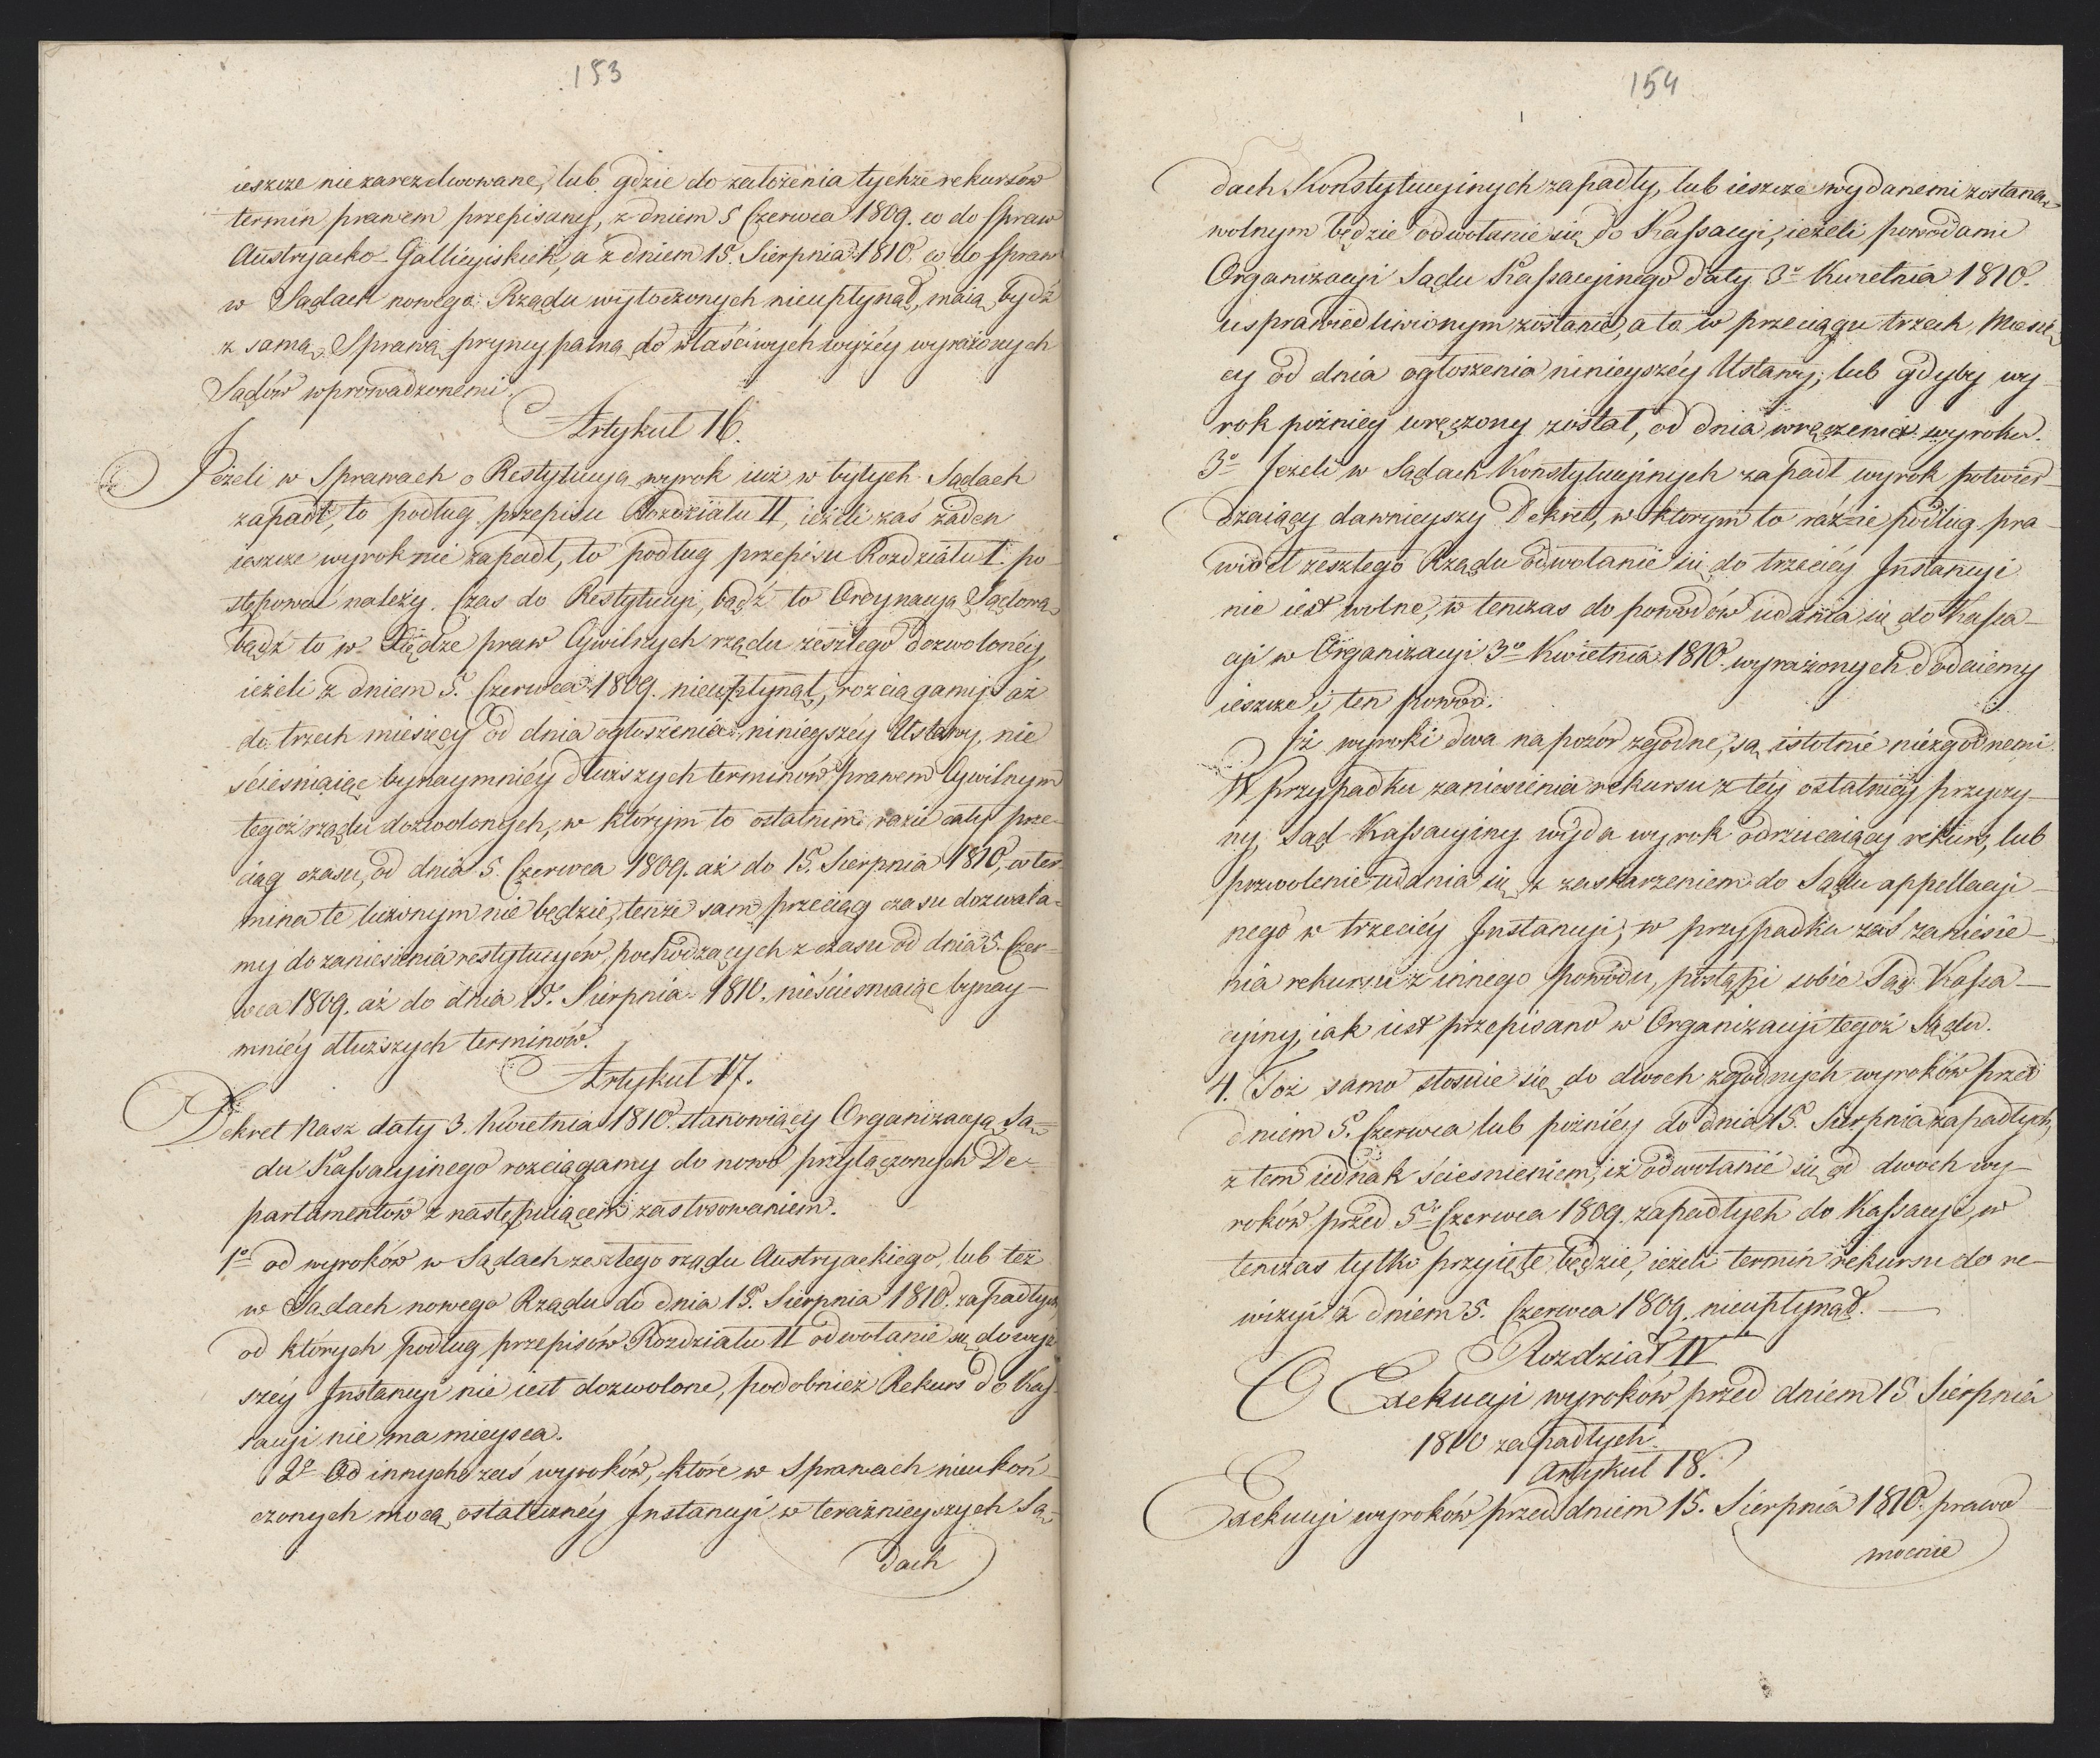 153
ieszcze niezarezolwowane, lub gdzie do założenia tychże rekursów
termin prawem przepisany, z dniem 5 Czerwca 1809. co do spraw
Austryacko-Gallicyiskich, a z dniem 15. Sierpnia 1810. co do spraw
w Sądach nowego Rządu wytoczonych nieupłynął, maią bydź
z samą Sprawą pryncypalną do właściwych wyżéy wyrażonych
Sądów wprowadzonemi.
Artykuł 16.
Jeżeli w Sprawach o Restytucyą wyrok iuż w byłych Sądach
zapadł, to podług przepisu Rozdziału II, ieżeli zaś żaden
ieszcze wyrok nie zapadł, to podług przepisu Rozdziału I. po-
stępować należy. Czas do Restytucyi, bądź to Ordynacyą Sądową
bądź to w Xiędze praw Cywilnych rządu zeszłego dozwolonéy,
ieżeli z dniem 5. Czerwca 1809. nieupłynął, rozciągamy aż
do trzech miesięcy od dnia ogłoszenia ninieyszéy Ustawy, nie
ścieśniaiąc bynaymniéy dłuższych terminów prawem Cywilnym
tegoż rządu dozwolonych, w którym to ostatnim razie cały prze-
ciąg czasu, od dnia 5. Czerwca 1809. aż do 15. Sierpnia 1810, w ter-
mina te liczonym nie będzie, tenże sam przeciąg czasu dozwala-
my do zaniesienia restytucyów, pochodzących z czasu od dnia 5. Czer-
wca 1809. aż do dnia 15. Sierpnia 1810. nieścieśniaiąc bynay-
mniéy dłuższych terminów.
Artykuł 17.
Dekret Nasz daty 3. Kwietnia 1810. stanowiący Organizacyą Są-
du Kassacyinego rozciągamy do nowo przyłączonych De-
partamentów z następuiącem zastosowaniem.
1o od wyroków w Sądach zeszłego rządu Austryackiego, lub też
w Sądach nowego Rządu do dnia 15. Sierpnia 1810. zapadłych,
od których podług przepisów Rozdziału II odwołanie się do wyż-
széy Instancyi nie iest dozwolone, podobnież Rekurs do Kas-
sacyi nie ma mieysca.
2o Od innych zaś wyroków, które w Sprawach nieukoń-
czonych mocą ostateczney Instancyi w teraźnieyszych Są-
dach
154
dach Konstytucyinych zapadły, lub ieszcze wydanemi zostaną,
wolnym będzie odwołanie się do Kassacyi, ieżeli powodami
Organizacyi Sądu Kassacyinego daty 3o Kwietnia 1810.
usprawiedliwionym zostanie, a to w przeciągu trzech Miesię-
cy od dnia ogłoszenia ninieyszéy Ustawy, lub gdyby wy-
rok poźniey wręczony został, od dnia wręczenia wyroku.
3o Jeżeli w Sądach Konstytucyinych zapadł wyrok potwier-
dzaiący dawnieyszy Dekret, w ktorym to razie podług pra-
wideł zeszłego Rządu odwołanie się do trzeciéy Instancyi
nie iest wolne, w tenczas do powodów udania się do Kassa-
cyi w Organizacyi 3o Kwietnia 1810. wyrażonych dodaiemy
ieszcze i ten powod.
Iż wyroki dwa na pozór zgodne, są istotnie niezgodnemi.
W przypadku zaniesienia rekursu z téy ostatniéy przyczy-
ny, Sąd Kassacyiny wyda wyrok odrzucaiący rekurs, lub
pozwolenie udania się z zaskarzeniem do Sądu appellacyi-
nego w trzeciéy Instancyi, w przypadku zaś zaniesie-
nia rekursu z innego powodu, postąpi sobie Sąd Kassa-
cyiny, iak iest przepisano w Organizacyi tegoż Sądu.
4. Toż samo stosuie się do dwoch zgodnych wyroków przed
dniem 5. Czerwca lub poźniéy do dnia 15. Sierpnia zapadłych,
z tem iednak ścieśnieniem, iż odwołanie się od dwoch wy-
roków przed 5o Czerwca 1809. zapadłych do Kassacyi, w
tenczas tylko przyięte będzie, ieżeli termin rekursu do re-
wizyi z dniem 5. Czerwca 1809. nieupłynął.
Rozdział IV
O Exekucyi wyroków przed dniem 15 Sierpnia
1810 zapadłych.
Artykuł 18.
Exekucyi wyroków przed dniem 15. Sierpnia 1810. prawo-
mocnie